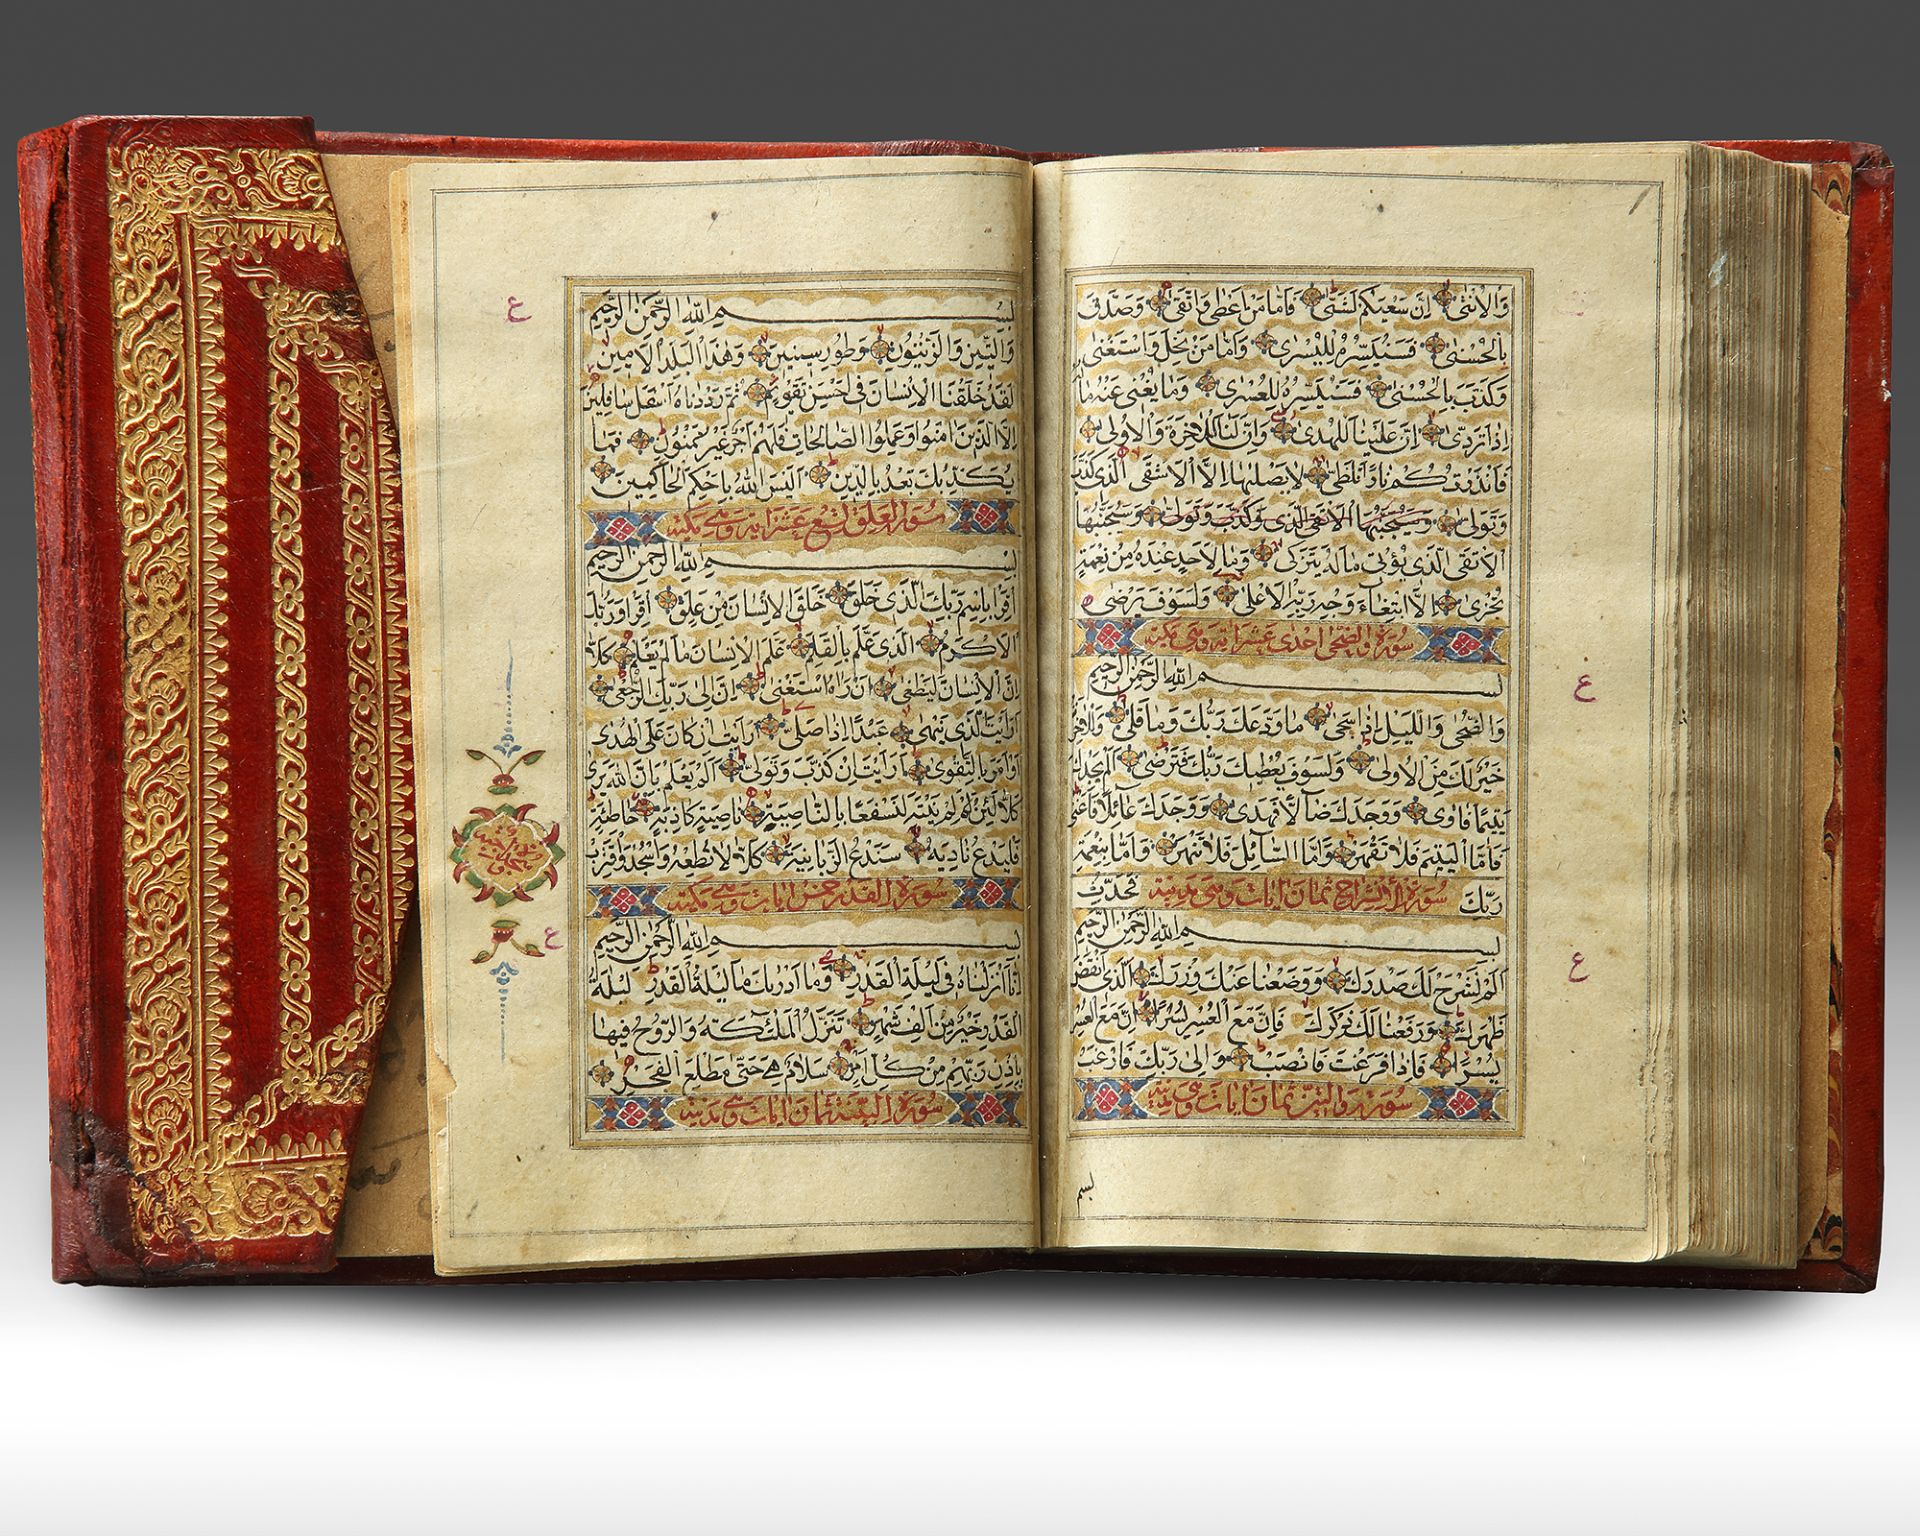 وَالْاُنْثٰى اِنَّ سَعْيَكُمْ لَشَتّٰى فَاَمَّا مَنْ اَعْطٰى وَاتَّقٰى وَصَدَّقَ
بِالْحُسْنٰى فَسَنُيَسِّرُهُ لِلْيُسْرٰى وَاَمَّا مَنْ بَخِلَ وَاسْتَغْنٰى
وَكَذَّبَ بِالْحُسْنٰى فَسَنُيَسِّرُهُ لِلْعُسْرٰى وَمَا يُغْنٖى عَنْهُ مَالُهُ
اِذَا تَرَدّٰى اِنَّ عَلَيْنَا لَلْهُدٰى وَاِنَّ لَنَا لَلْاٰخِرَةَ وَالْاُولٰى
فَاَنْذَرْتُكُمْ نَارًا تَلَظّٰى لَا يَصْلٰيهَا اِلَّا الْاَشْقَى الَّذٖى كَذَّبَ
وَتَوَلّٰى وَسَيُجَنَّبُهَا الْاَتْقَى الَّذٖى وَكَذَّبَ وَتَوَلّٰى وَسَيُجَنَّبُهَا
الْاَتْقَى الَّذٖى يُؤْتٖى مَالَهُ يَتَزَكّٰى وَمَا لِاَحَدٍ عِنْدَهُ مِنْ نِعْمَةٍ
تُجْزٰى اِلَّا ابْتِغَاءَ وَجْهِ رَبِّهِ الْاَعْلٰى وَلَسَوْفَ يَرْضٰى
سورة والضحى احدى عشر اية وهى مكية
بِسْمِ اللهِ الرَّحْمٰنِ الرَّحِيمِ
وَالضُّحٰى وَالَّيْلِ اِذَا سَجٰى مَا وَدَّعَكَ رَبُّكَ وَمَا قَلٰى وَلَلْاٰخِرَةُ
خَيْرٌ لَكَ مِنَ الْاُولٰى وَلَسَوْفَ يُعْطِيكَ رَبُّكَ فَتَرْضٰى اَلَمْ يَجِدْكَ
يَتِيمًا فَاٰوٰى وَوَجَدَكَ ضَالًّا فَهَدٰى وَوَجَدَكَ عَائِلًا فَاَغْنٰى
فَاَمَّا الْيَتِيمَ فَلَا تَقْهَرْ وَاَمَّا السَّائِلَ فَلَا تَنْهَرْ وَاَمَّا بِنِعْمَةِ
رَبِّكَ سورة الم نشرح ثمان ايات وهى مدنية فَحَدِّثْ
بِسْمِ اللهِ الرَّحْمٰنِ الرَّحِيمِ
اَلَمْ نَشْرَحْ لَكَ صَدْرَكَ وَوَضَعْنَا عَنْكَ وِزْرَكَ الَّذٖى اَنْقَضَ
ظَهْرَكَ وَرَفَعْنَا لَكَ ذِكْرَكَ فَاِنَّ مَعَ الْعُسْرِ يُسْرًا اِنَّ مَعَ الْعُسْرِ
يُسْرًا فَاِذَا فَرَغْتَ فَانْصَبْ وَاِلٰى رَبِّكَ فَارْغَبْ
سورة والتين ثمان ايات وهى مدنية
بسم
ع
ع
بِسْمِ اللهِ الرَّحْمٰنِ الرَّحِيمِ
وَالتِّينِ وَالزَّيْتُونِ وَطُورِ سِينِينَ وَهٰذَا الْبَلَدِ الْاَمِينِ
لَقَدْ خَلَقْنَا الْاِنْسَانَ فٖى اَحْسَنِ تَقْوِيمٍ ثُمَّ رَدَدْنَاهُ اَسْفَلَ سَافِلِينَ
اِلَّا الَّذِينَ اٰمَنُوا وَعَمِلُوا الصَّالِحَاتِ فَلَهُمْ اَجْرٌ غَيْرُ مَمْنُونٍ فَمَا
يُكَذِّبُكَ بَعْدُ بِالدِّينِ اَلَيْسَ اللهُ بِاَحْكَمِ الْحَاكِمِينَ
سورة العلق تسع عشر اية وهى مكية
بِسْمِ اللهِ الرَّحْمٰنِ الرَّحِيمِ
اِقْرَأْ بِاسْمِ رَبِّكَ الَّذٖى خَلَقَ خَلَقَ الْاِنْسَانَ مِنْ عَلَقٍ اِقْرَأْ وَرَبُّكَ
الْاَكْرَمُ الَّذٖى عَلَّمَ بِالْقَلَمِ عَلَّمَ الْاِنْسَانَ مَا لَمْ يَعْلَمْ كَلَّا
اِنَّ الْاِنْسَانَ لَيَطْغٰى اَنْ رَاٰهُ اسْتَغْنٰى اِنَّ اِلٰى رَبِّكَ الرُّجْعٰى
اَرَاَيْتَ الَّذٖى يَنْهٰى عَبْدًا اِذَا صَلّٰى اَرَاَيْتَ اِنْ كَانَ عَلَى الْهُدٰى
اَوْ اَمَرَ بِالتَّقْوٰى اَرَاَيْتَ اِنْ كَذَّبَ وَتَوَلّٰى اَلَمْ يَعْلَمْ بِاَنَّ اللهَ يَرٰى
كَلَّا لَئِنْ لَمْ يَنْتَهِ لَنَسْفَعًا بِالنَّاصِيَةِ نَاصِيَةٍ كَاذِبَةٍ خَاطِئَةٍ
فَلْيَدْعُ نَادِيَهُ سَنَدْعُ الزَّبَانِيَةَ كَلَّا لَا تُطِعْهُ وَاسْجُدْ وَاقْتَرِبْ
سورة القدر خمس ايات وهى مكية
بِسْمِ اللهِ الرَّحْمٰنِ الرَّحِيمِ
اِنَّا اَنْزَلْنَاهُ فٖى لَيْلَةِ الْقَدْرِ وَمَا اَدْرٰيكَ مَا لَيْلَةُ الْقَدْرِ لَيْلَةُ
الْقَدْرِ خَيْرٌ مِنْ اَلْفِ شَهْرٍ تَنَزَّلُ الْمَلٰئِكَةُ وَالرُّوحُ فِيهَا
بِاِذْنِ رَبِّهِمْ مِنْ كُلِّ اَمْرٍ سَلَامٌ هِىَ حَتّٰى مَطْلَعِ الْفَجْرِ
سورة البينة ثمان ايات وهى مدنية
ع
ع